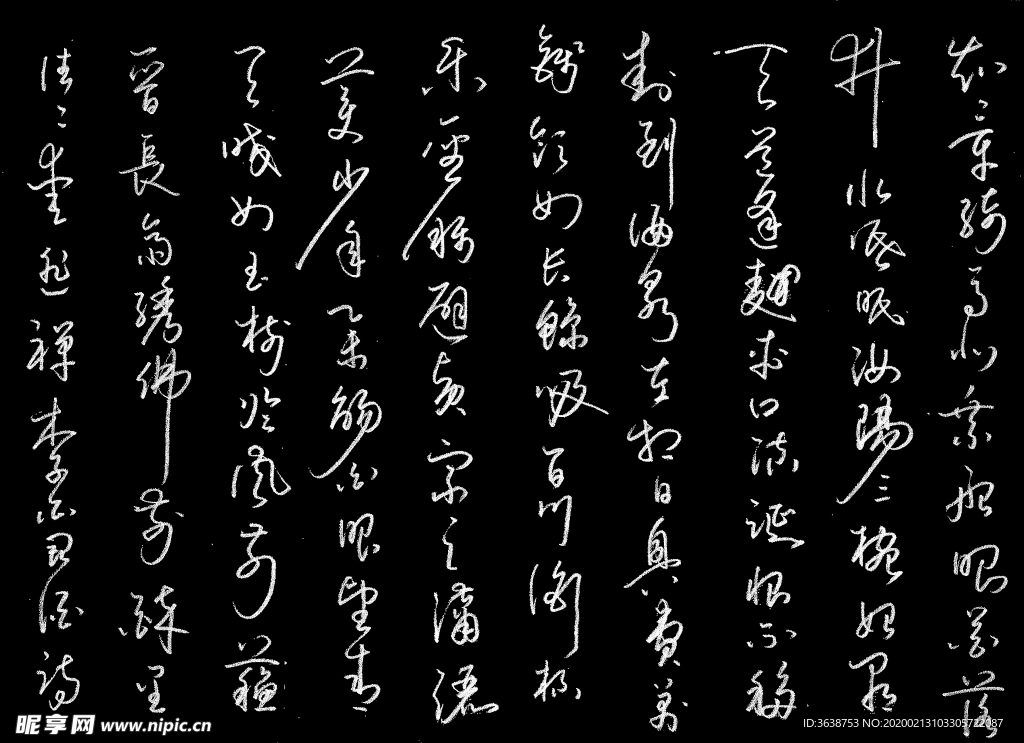 知章骑馬似乘船眼花落
井水底眠汝陽三始朝
天道逢麴車口流涎恨不移
封到酒泉左相日興費萬
錢飲如長鯨吸百川銜杯
樂聖稱避賢宗之瀟灑
美少年舉觴白眼望青
天皎如玉樹臨風前蘇
晉長齋繡佛前醉里
往往愛逃禪李白酒詩
昵享网 www.nipic.cn
ID:3638753 NO:20200213103305722087